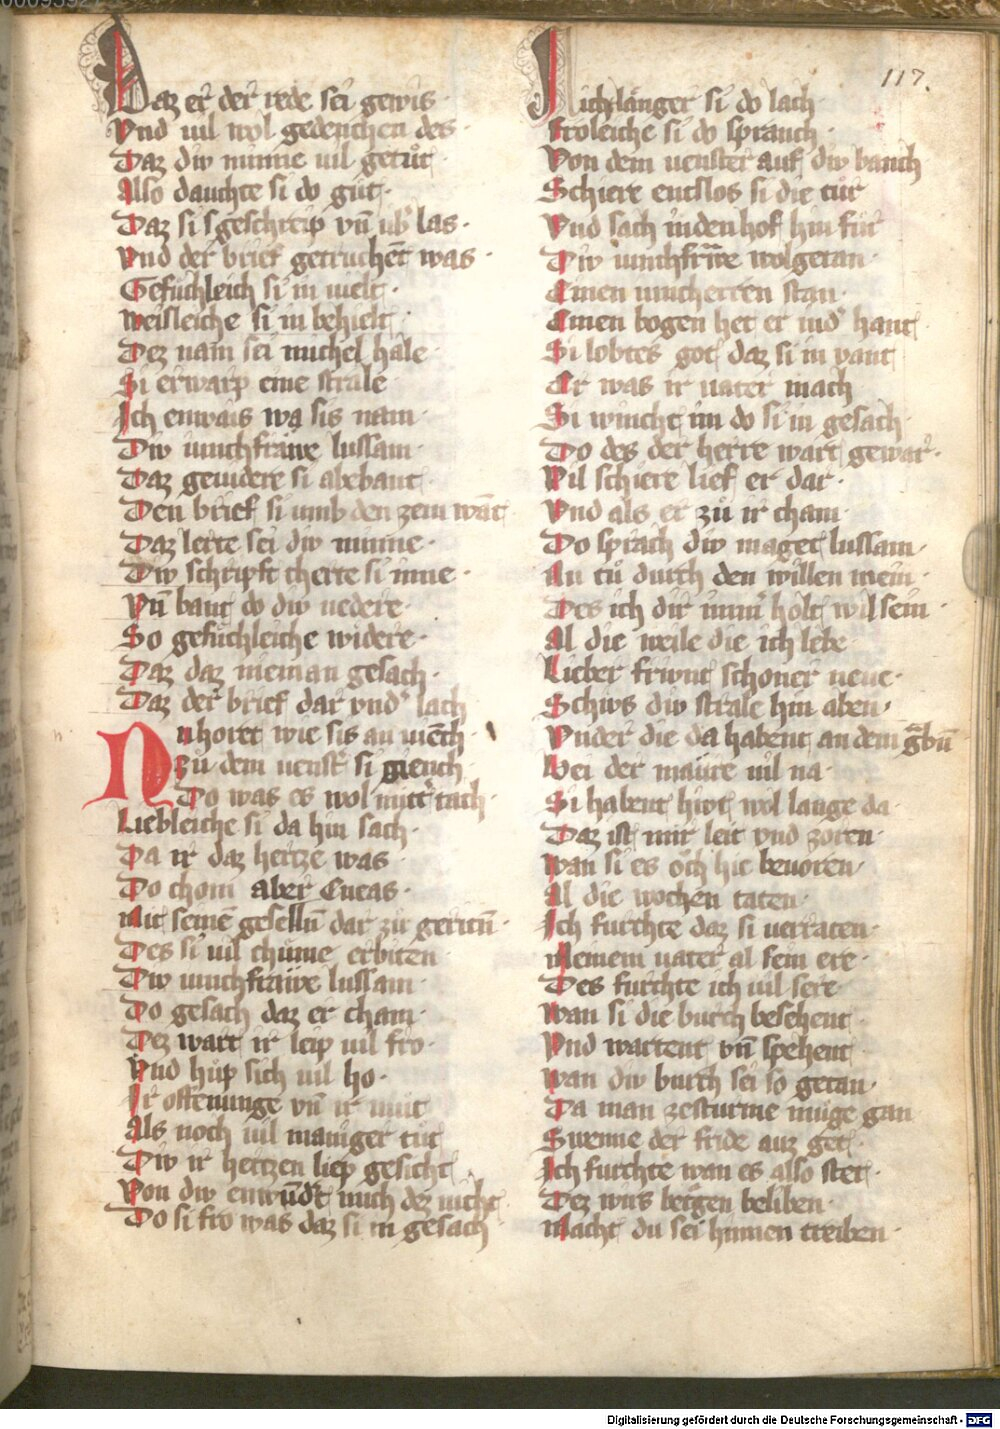 117.
Daz er der rede sei gewis ·
Vnd uil wol gedenchen des ·
Daz div minne uil getuͦt ·
Also dauchte si do guͦt ·
Daz si s geschreip vn̄ ub' las ·
Vnd der brief getruchēt was ·
Gefuͦchleich si in uielt ·
Weisleiche si in behielt ·
Dez nam sei michel hale
Si erwarp eine strale
Ich enwais wa sis nam ·
Div iunchfräwe lussam ·
Daz geuidere si abebant ·
Den brief si umb den zein wāt ·
Daz lerte sei div minne ·
Div schripft cherte si inne ·
Vn̄ bant do div uedere ·
So gefuͦchleiche widere ·
Daz daz nieman gesach ·
Daz der brief dar vnd' lach
Nu horet wie sis an uiēch
zu dem uenst' si giench
Do was es wol mitt' tach ·
Liebleiche si da hin sach ·
Da ir daz hertze was ·
Do chom aber Eneas ·
Mit seinē gesellen̄ dar zu geritn̄ ·
Des si uil chuͦme erbiten ·
Div iunchfräwe lussam ·
Do gesach daz er cham ·
Dez wart ir leip uil fro ·
Vnd huͦp sich uil ho ·
Ir offenunge vn̄ ir muͦt
Als noch uil maniger tuͦt
Div ir hertzen liep gesicht
Von div enwūd't mich dez nicht
Do si fro was daz si in gesach
Nicht länger si do lach
Froleiche si do sprauch ·
Von dem uenster auf div banch
Schiere entslos si die tuͦr
Vnd sach in den hof hin fuͦr
Div iunchfräwe wolgetan ·
Einen iuncherren stan ·
Einen bogen het er ind' hant
Si lobtes got daz si in vant
Er was ir uater mach
Si wincht im do si in gesach ·
Do des der herre wart gewar ·
Vil schiere lief er dar ·
Vnd als er zuͦ ir cham ·
Do sprach div maget lussam ·
Nu tuͦ durch den willen mein ·
Des ich dir im̄m' holt wil sein ·
Al die weile die ich lebe
Lieber friwnt schoner neue ·
Schivs div strale hin aben ·
Vnder die da habent an dem gͣbn̄
Bei der maure uil na ·
Si habent hivt wol lange da ·
Daz ist mir leit vnd zoren ·
Wan si es och hie beuoren ·
Al die wochen taten ·
Ich furchte daz si uerraten ·
Meinem uater al sein ere ·
Des furchte ich uil sere ·
Wan si die burch besehent ·
Vnd wartent vn̄ spehent
Wan div burch sei so getan ·
Da man ze sturme muͦge gan
Swenne der fride auz get ·
Ich furchte wan es also stet ·
Dez wirs letzen beliben ·
Macht du sei hinnen treiben ·
Digitalisierung gefördert durch die Deutsche Forschungsgemeinschaft - DFG